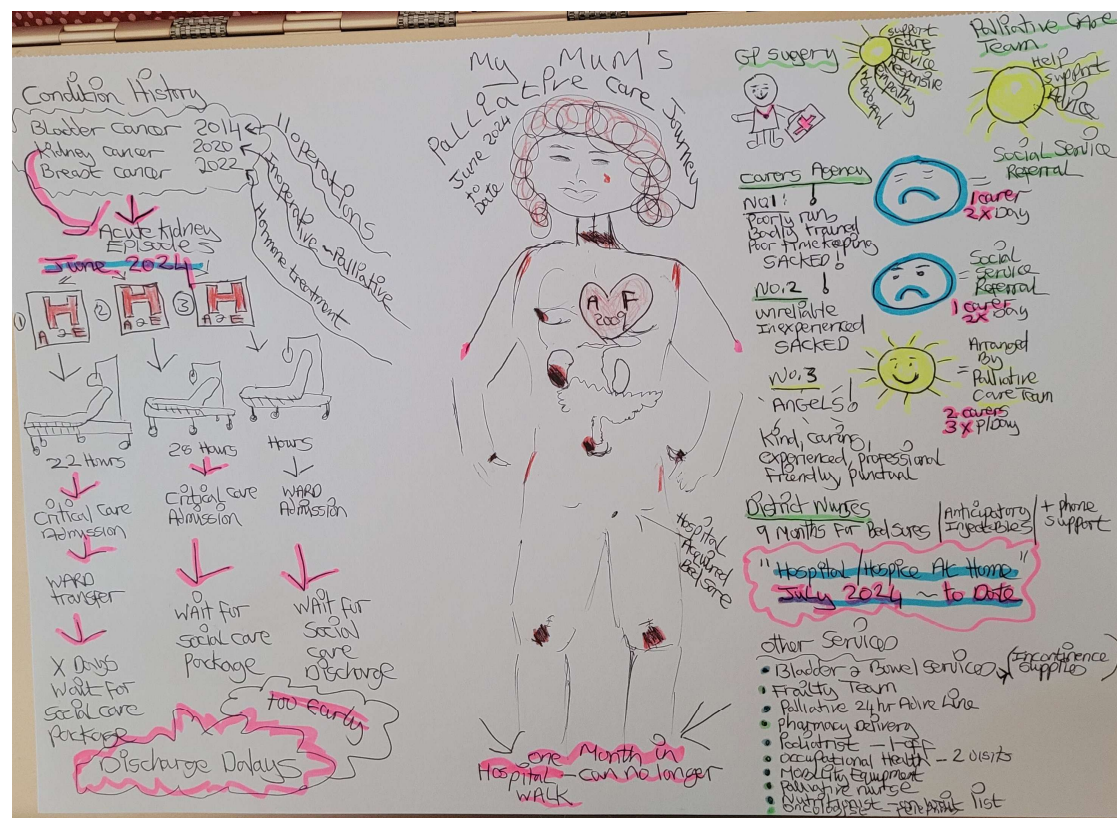 My Mum's
Palliative Care Journey
June 2024
to
Date
Condition History
Bladder Cancer 2014
Kidney cancer 2020
Breast cancer 2022
11 operations
Inoperable - Palliative
Hormone treatment
Acute Kidney
Episodes
June 2024
1
H
A & E
2
H
A & E
3
H
A & E
22 Hours
Critical care
Admission
WARD
transfer
X Days
Wait for
social care
package
28 Hours
Critical care
Admission
WAIT FOR
social care
Package
Hours
WARD
Admission
WAIT FOR
Social
care
Discharge
too Early
Discharge Dalays
A F
2009
Hospital
Acquired
Bedsore
one Month in
Hospital - can no longer
WALK
GP sugery
support
care
advice
responsive
empathy
Palliative Care
Team
Help
support
Advice
Carers Agency
No1!
Poorly run
Badly trained
Poor timekeeping
SACKED!
= Social Service
Referral
1 carer
2x Day
No.2 !
unreliable
Inexperienced
SACKED
= Social
Service
Referral
1 carer
2x Day
No.3
ANGELS!
Kind, caring,
experienced, professional
Friendly, punctual
= Arranged
By
Palliative
Care Team
2 carers
3 x P/Day
District Nurses
9 Months For Bedsores / Anticipatory Injectables / + phone support
"Hospital/Hospice At Home"
July 2024 ~ to Date
other Services
Bladder & Bowel Services (Incontinence supplies)
Frailty Team
Palliative 24hr Advice Line
Pharmacy Delivery
Podiatrist - 1-off
Occupational Health - 2 visits
Mobility Equipment
Palliative nurse
Nutritionist - list
Oncologist - telephone